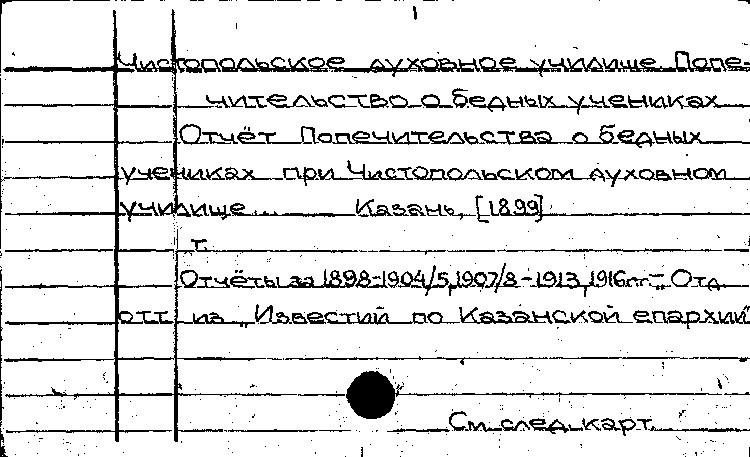 Чистопольское духовное училище. Попе-
чительство о бедных учениках
Отчёт Попечительства о бедных
учениках при Чистопольском духовном
училище... Казань, [1899]
т.
Отчёты за 1898-1904/5, 1907/8-1913, 1916 гг. - Отд.
отт. из "Известий по Казанской епархии"
См. след. карт.